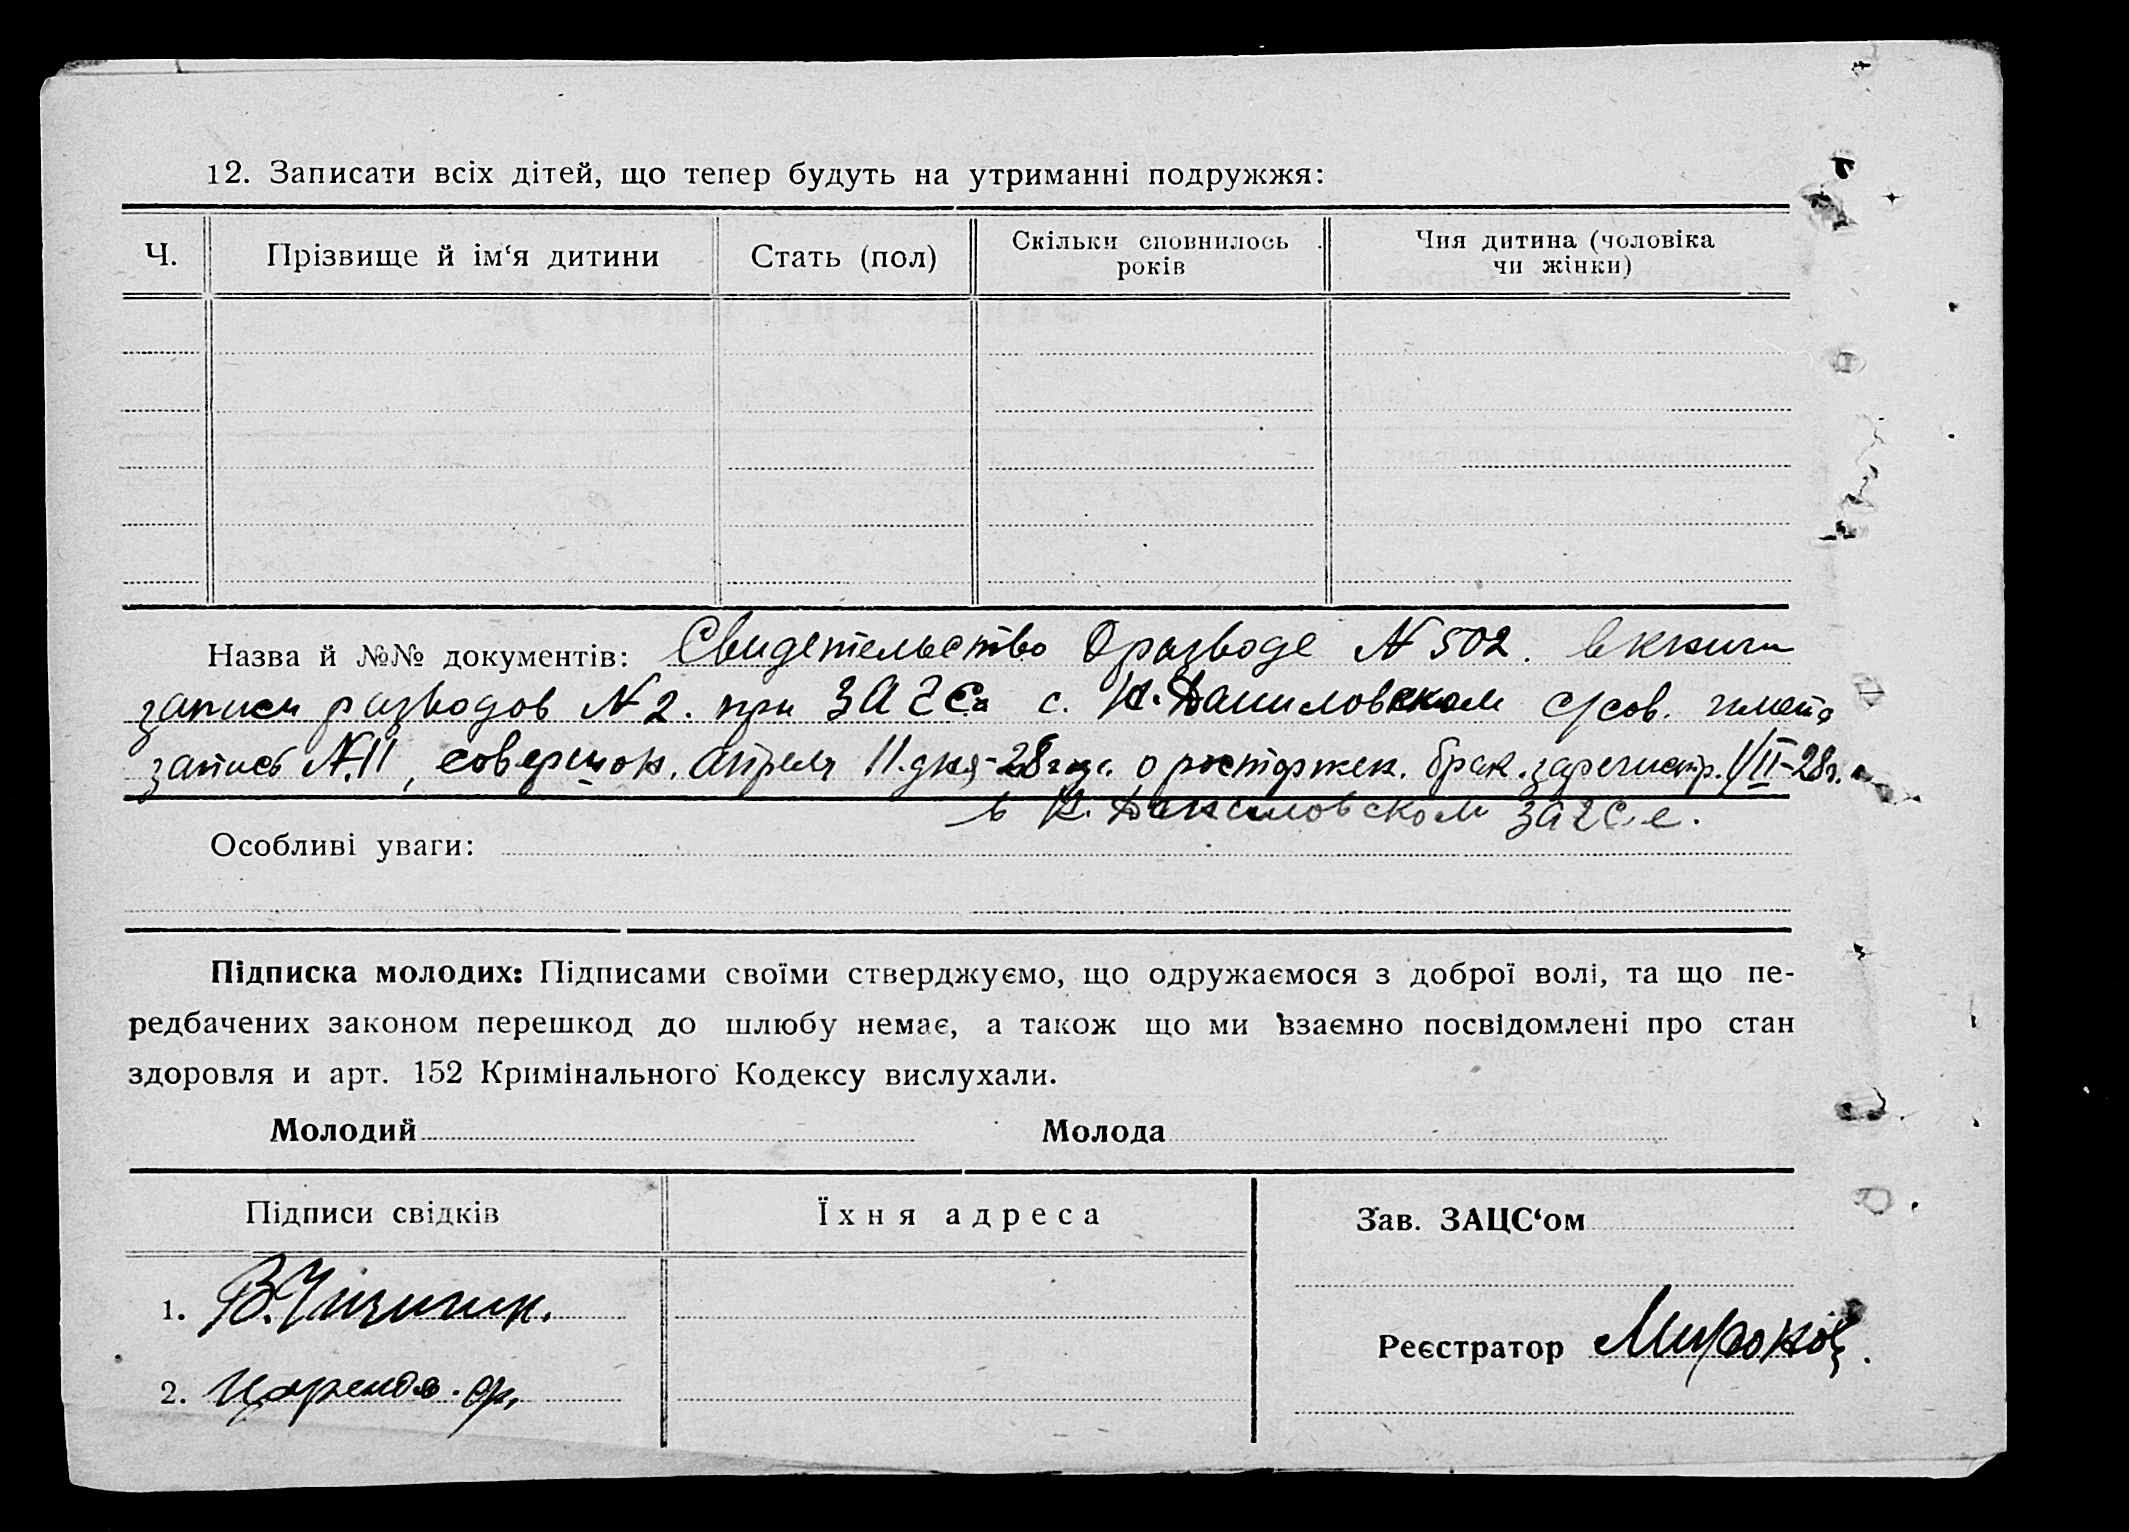 12. Записати всіх дітей, що тепер будуть на утриманні подружжя:
Ч. Прізвище й ім‘я дитини Стать (пол) Скільки сповнилось років Чия дитина (чоловіка чи жінки)
Назва й №№ документів: Свидетельство О разводе № 502. в книги
записи разводов № 2. при ЗАГСе с. Н. Даниловском с/сов.
запись № 11, совершон. Апреля 11 дня - 28 года о расторжен. брак. зарегистр. 1/II-28г.
в Н. Даниловском загсе.
Особливі уваги:
Підписка молодих: Підписами своїми стверджуємо, що одружаємося з доброї волі, та що пе-
редбачених законом перешкод до шлюбу немає, а також що ми взаємно посвідомлені про стан
здоровля и арт. 152 Кримінального Кодексу вислухали.
Молодий Молода
Підписи свідків Їхня адреса Зав. ЗАЦС‘ом
1. В.
Реєстратор
2.